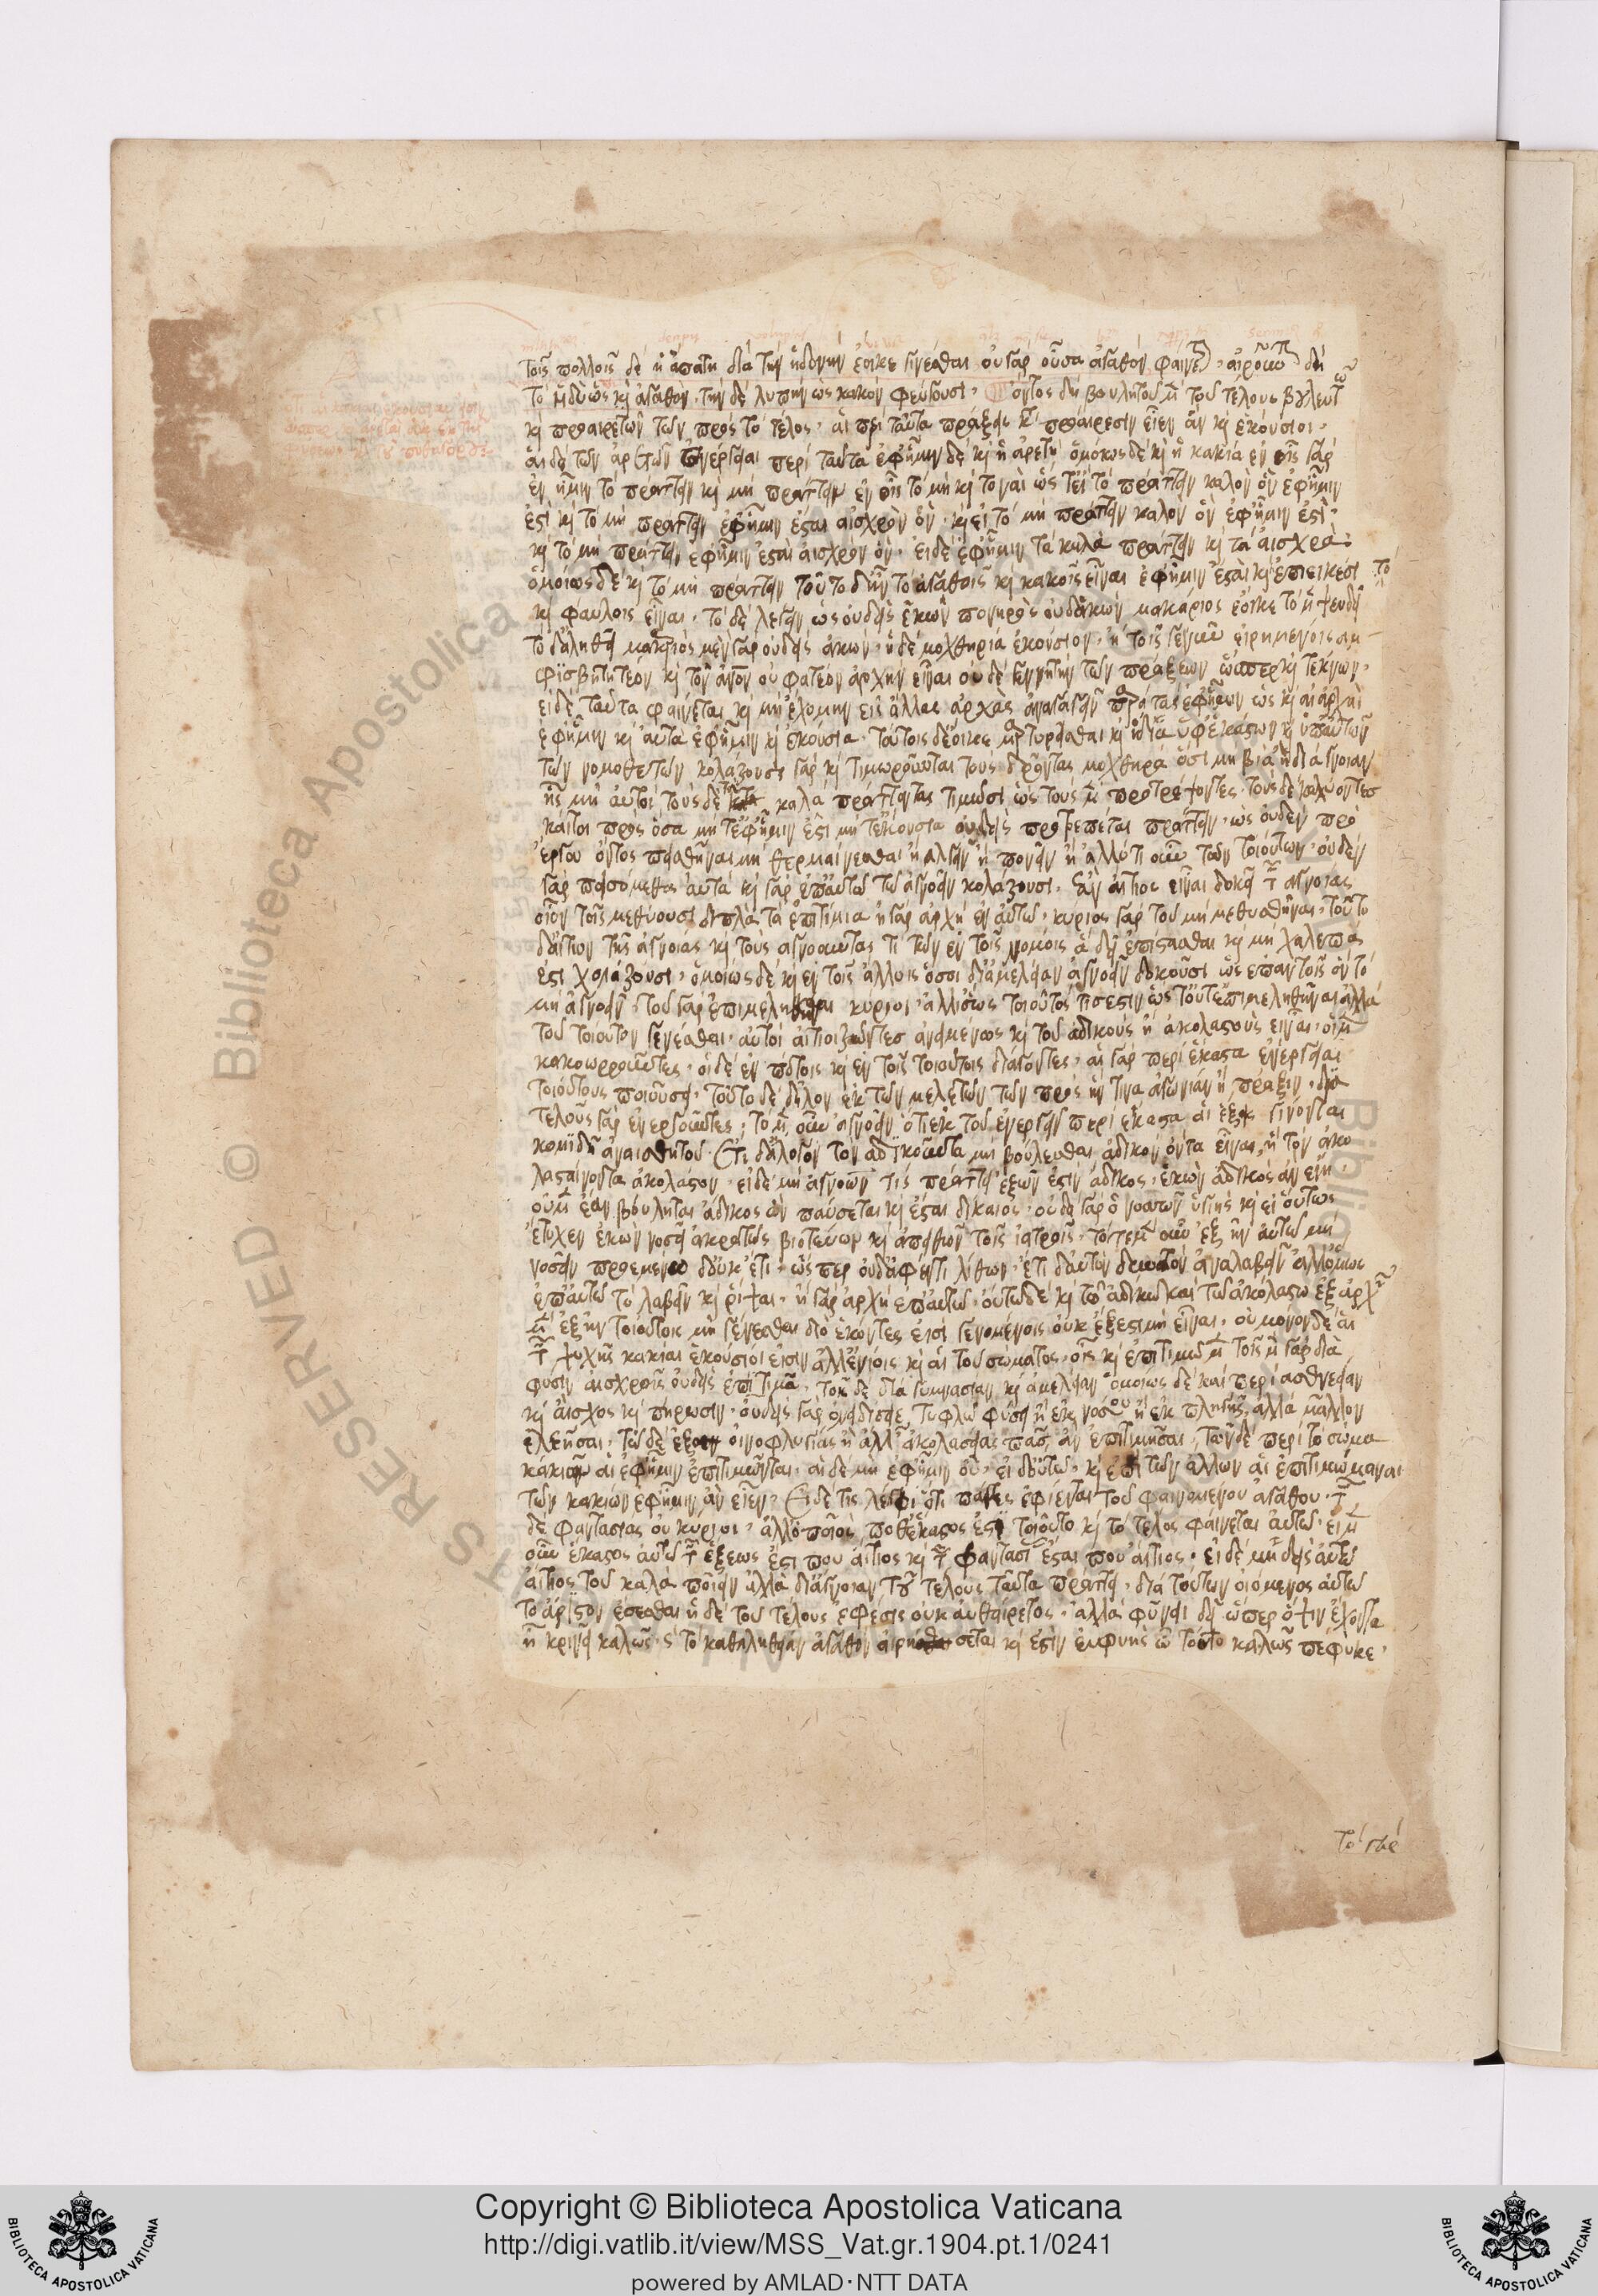 τοῖς πολλοῖς δὲ ἡ ἀπάτη διὰ τὴν ἡδονὴν ἔοικε γίνεσθαι οὐ γὰρ οὖσα ἀγαθὸν φαίνετ · αἱροῦντ δὴ
τὸ ἡδὺ ὡς κ ἀγαθὸν · τὴν δὲ λύπην ὡς κακὸν φεύγουσι · ὄντος δὴ βουλητοῦ μ τοῦ τέλους βουλευτῶ
κ προαιρετῶν τῶν πρὸς τὸ τέλος · αἱ περὶ ταῦτα πράξεις κτ προαίρεσιν εἶεν ἂν κ ἑκούσιοι ·
αἱ δὲ τῶν ἀρετῶν ἐνέργειαι περὶ ταῦτα ἐφ ἡμῖν δὲ κ ἡ ἀρετὴ ὁμοίως δὲ κ ἡ κακία ἐν οἷς γὰρ
ἐν ἡμῖν τὸ πράττειν κ μὴ πράττειν ἐν οἷς τὸ μὴ κ τὸ ναὶ ὥς τ εἰ τὸ πράττειν καλὸν ὂν ἐφ ἡμῖν
ἐστὶ κ τὸ μὴ πράττειν ἐφ ἡμῖν ἔσται αἰσχρὸν ὂν · κ εἰ τὸ μὴ πράττειν καλὸν ὂν ἐφ ἡμῖν ἐστὶ ·
κ τὸ μὴ πράττειν ἐφ ἡμῖν ἔσται αἰσχρὸν ὂν · εἰ δὲ ἐφ ἡμῖν τὰ καλὰ πράττειν κ τὰ αἰσχρὰ ·
ὁμοίως δὲ κ τὸ μὴ πράττειν τοῦτο δ ἦν τὸ ἀγαθοῖς κ κακοῖς εἶναι ἐφ ἡμῖν ἔσται κ ἐπιεικέσι τὸ
κ φαύλοις εἶναι · τὸ δὲ λέγειν ὡς οὐδεὶς ἑκὼν πονηρὸς οὐδ ἄκων μακάριος ἔοικε τὸ μ ψευδεῖ
τὸ δ ἀληθεῖ μακάριος μὲν γὰρ οὐδεὶς ἄκων · ἡ δὲ μοχθηρία ἑκούσιον · ἢ τοῖς γε νῦν εἰρημένοις ἀμ
φισβητητέον κ τὸν ἄνον οὐ φατέον ἀρχὴν εἶναι οὐδὲ γεννητὴν τῶν πράξεων ὥσπερ κ τέκνων ·
εἰ δὲ ταῦτα φαίνεται κ μὴ ἔχομεν εἰς ἄλλας ἀρχὰς ἀναγαγεῖν παρὰ τὰς ἐφ ἡμῖν ὡς κ αἱ ἀρχαὶ
ἐφ ἡμῖν κ αὐτὰ ἐφ ἡμῖν κ ἑκούσια · τούτοις δ ἔοικε μαρτυρεῖσθαι κ ἰδίᾳ ὑφ ἑκάστων κ ὑπ αὐτῶν
τῶν νομοθετῶν κολάζουσι γὰρ κ τιμωροῦνται τοὺς δρῶντας μοχθηρὰ ὅσοι μὴ βίᾳ ἢ δι ἄγνοιαν
ἧς μὴ αὐτοὶ τοὺς δὲ τὰ καλὰ πράττοντας τιμῶσι ὡς τοὺς μ προτρέψοντες · τοὺς δὲ κωλύοντες
καίτοι πρὸς ὅσα μήτ ἐφ ἡμῖν ἐστὶ μήτ ἑκούσια οὐδεὶς προτρέπεται πράττειν · ὡς οὐδὲν πρὸ
ἔργου ὄντος πεισθῆναι μὴ θερμαίνεσθαι ἢ ἀλγεῖν ἢ πεινῆν ἢ ἄλλο τι οὖν τῶν τοιούτων · οὐδὲν
γὰρ πεισόμεθα αὐτὰ κ γὰρ ἐπ αὐτῷ τῷ ἀγνοεῖν κολάζουσι · ἐὰν αἴτιος εἶναι δοκῇ τ ἀγνοίας
οἷον τοῖς μεθύουσι διπλᾶ τὰ ἐπιτίμια ἡ γὰρ ἀρχὴ ἐν αὐτῷ · κύριος γὰρ τοῦ μὴ μεθυσθῆναι · τοῦτο
δ αἴτιον τῆς ἀγνοίας κ τοὺς ἀγνοοῦντας τι τῶν ἐν τοῖς νόμοις ἃ δεῖ ἐπίστασθαι κ μὴ χαλεπά
ἐστι κολάζουσι · ὁμοίως δὲ κ ἐν τοῖς ἄλλοις ὅσοι δι ἀμέλειαν ἀγνοεῖν δοκοῦσι ὡς ἐπ αὐτοῖς ὂν τὸ
μὴ ἀγνοεῖν · τοῦ γὰρ ἐπιμεληθῆναι κύριοι · ἀλλ ἴσως τοιοῦτός τίς ἐστιν ὥστε ἐπιμεληθῆναι ἀλλὰ
τοῦ τοιούτου γενέσθαι · αὐτοὶ αἴτιοι ζῶντες ἀνειμένως κ τοῦ ἀδίκους ἢ ἀκολάστους εἶναι · οἱ μ
κακουργοῦντες · οἱ δὲ ἐν πότοις κ ἐν τοῖς τοιούτοις διάγοντες · αἱ γὰρ περὶ ἕκαστα ἐνέργειαι
τοιούτους ποιοῦσι · τοῦτο δὲ δῆλον ἐκ τῶν μελετώντων πρὸς ἥντινα ἀγωνίαν ἢ πρᾶξιν · δια
τελοῦσι γὰρ ἐνεργοῦντες · τὸ μ οὖν ἀγνοεῖν ὅτι ἐκ τοῦ ἐνεργεῖν περὶ ἕκαστα αἱ ἕξεις γίνονται
κομιδῇ ἀναισθήτου · Ἔτι δ ἄλογον τὸν ἀδικοῦντα μὴ βούλεσθαι ἄδικον ὄντα εἶναι, ἢ τὸν ἀκο
λασταίνοντα ἀκόλαστον · εἰ δὲ μὴ ἀγνοῶν τις πράττει ἐξ ὧν ἐστὶν ἄδικος · ἑκὼν ἄδικος ἂν εἴη ·
οὐ μ ἐὰν βούληται ἄδικος ὢν παύσεται κ ἔσται δίκαιος · οὐδὲ γὰρ ὁ νοσῶν ὑγιὴς κ εἰ οὕτως
ἔτυχεν ἑκὼν νοσεῖ ἀκρατῶς βιοτεύων κ ἀπειθῶν τοῖς ἰατροῖς · τότε μ οὖν ἐξ ἦν αὐτῷ μὴ
νοσεῖν προεμένῳ δ οὐκ ἔτι · ὥσπερ οὐδ ἀφέντι λίθον · ἔτι δ αὐτὸν δυνατὸν ἀναλαβεῖν ἀλλ ὅμως
ἐπ αὐτῷ τὸ λαβεῖν κ ῥίψαι · ἡ γὰρ ἀρχὴ ἐπ αὐτῷ · οὕτω δὲ κ τῷ ἀδίκῳ καὶ τῷ ἀκολάστῳ ἐξ ἀρχῆς
μ ἐξῆν τοιούτοις μὴ γενέσθαι διὸ ἑκόντες εἰσὶ γενομένοις οὐκ ἔξεστι μὴ εἶναι · οὐ μόνον δὲ αἱ
τ ψυχῆς κακίαι ἑκούσιοί εἰσιν ἀλλ ἐνίοις κ αἱ τοῦ σώματος · οἷς κ ἐπιτιμῶμ τοῖς μ γὰρ διὰ
φύσιν αἰσχροῖς οὐδεὶς ἐπιτιμᾷ · τοῖς δὲ διὰ γυμνασίαν κ ἀμέλειαν ὁμοίως δὲ καὶ περὶ ἀσθένειαν
κ αἶσχος κ πήρωσιν · οὐδεὶς γὰρ ὀνειδίσειε τυφλῷ φύσει ἢ ἐκ νόσου ἢ ἐκ πληγῆς, ἀλλὰ μᾶλλον
ἐλεῆσαι · τῷ δὲ ἐξ οἰνοφλυγίας ἢ ἄλλ ἀκολασίας πᾶς ἂν ἐπιτιμήσαι · τῶν δὲ περὶ τὸ σῶμα
κακιῶν αἱ ἐφ ἡμῖν ἐπιτιμῶνται · αἱ δὲ μὴ ἐφ ἡμῖν οὔ · εἰ δ οὕτω · κ ἐπὶ τῶν ἄλλων αἱ ἐπιτιμώμεναι
τῶν κακιῶν ἐφ ἡμῖν ἂν εἶεν · Εἰ δέ τις λέγοι ὅτι πάντες ἐφίενται τοῦ φαινομένου ἀγαθοῦ · τ
δὲ φαντασίας οὐ κύριοι · ἀλλ ὁποῖός ποθ ἕκαστός ἐστι τοιοῦτο κ τὸ τέλος φαίνεται αὐτῷ · εἰ μ
οὖν ἕκαστος αὑτῷ τ ἕξεως ἐστί που αἴτιος κ τ φαντασί ἔσται που αἴτιος · εἰ δὲ μηδεὶς αὑτῷ
αἴτιος τοῦ κακὰ ποιεῖν ἀλλὰ δι ἄγνοιαν τοῦ τέλους ταῦτα πράττει · διὰ τούτων οἰόμενος αὑτῷ
τὸ ἄριστον ἔσεσθαι ἡ δὲ τοῦ τέλους ἔφεσις οὐκ αὐθαίρετος · ἀλλὰ φῦναι δεῖ ὥσπερ ὄψιν ἔχοντα
ᾗ κρινεῖ καλῶς · κ τὸ κατ ἀλήθειαν ἀγαθὸν αἱρήσεται κ ἐστὶν εὐφυὴς ᾧ τοῦτο καλῶς πέφυκε ·
Copyright © Biblioteca Apostolica Vaticana
http://digi.vatlib.it/view/MSS_Vat.gr.1904.pt.1/0241
powered by AMLAD·NTT DATA